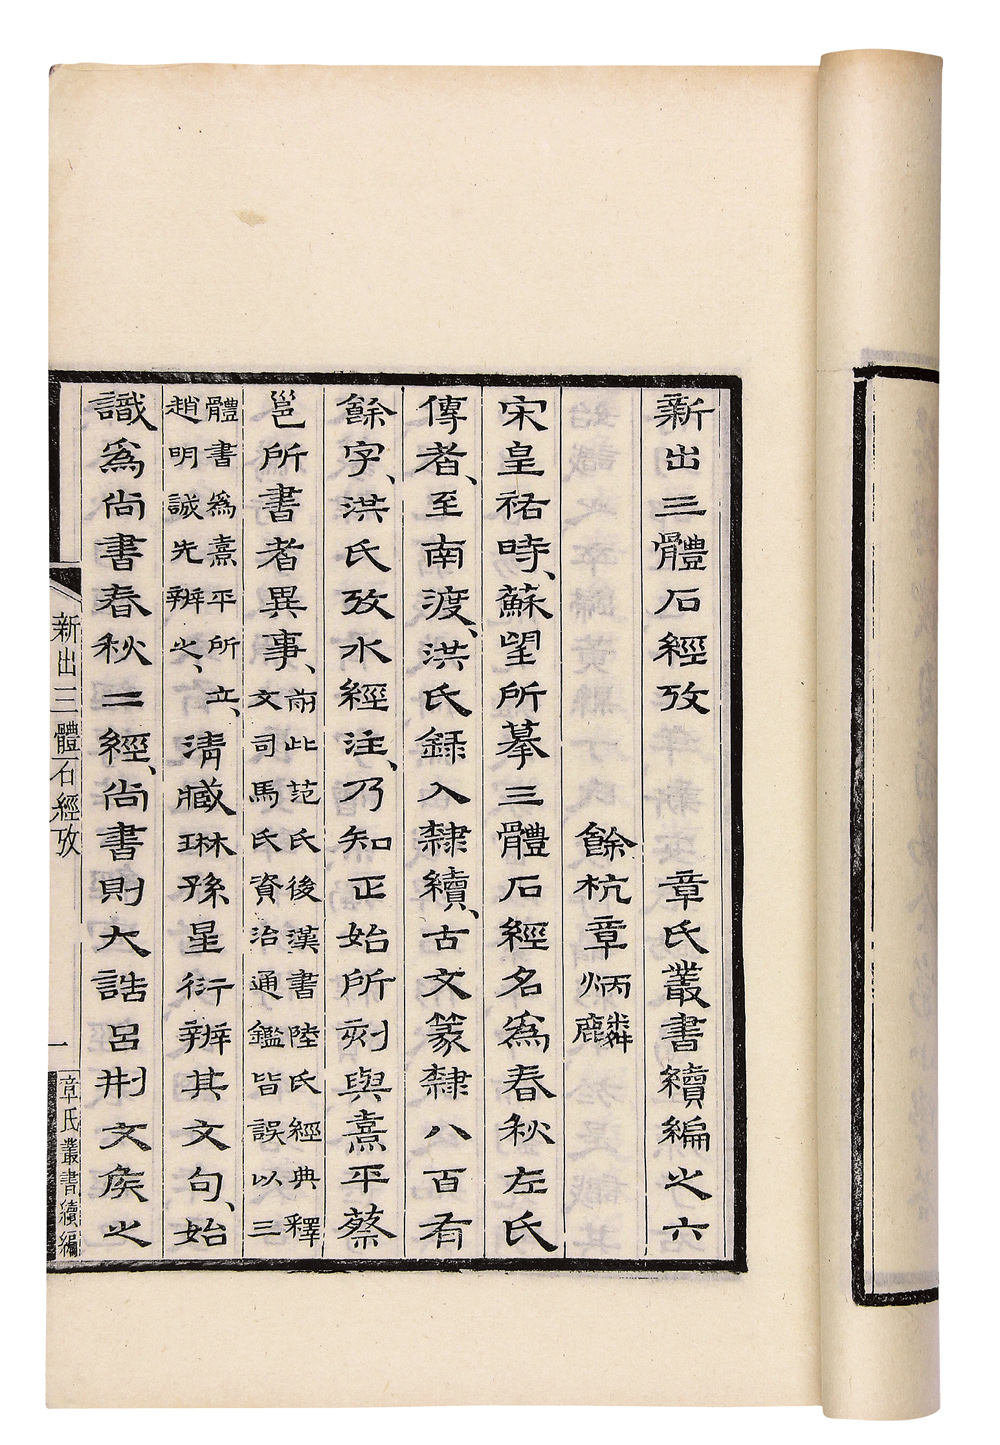 新出三體石經攷 章氏叢書續編之六
餘杭章炳麟
宋皇祐時、蘇望所摹三體石經名爲春秋左氏
傳者、至南渡、洪氏錄入隸續、古文篆隸八百有
餘字、洪氏攷水經注、乃知正始所刻與熹平蔡
邕所書者異事、前此范氏後漢書陸氏經典釋
文司馬氏資治通鑑皆誤以三
體書爲熹平所立、
趙明誠先辨之、清臧琳孫星衍辨其文句、始
識爲尚書春秋二經、尚書則大誥呂刑文侯之
新出三體石經攷
一
章氏叢書續編